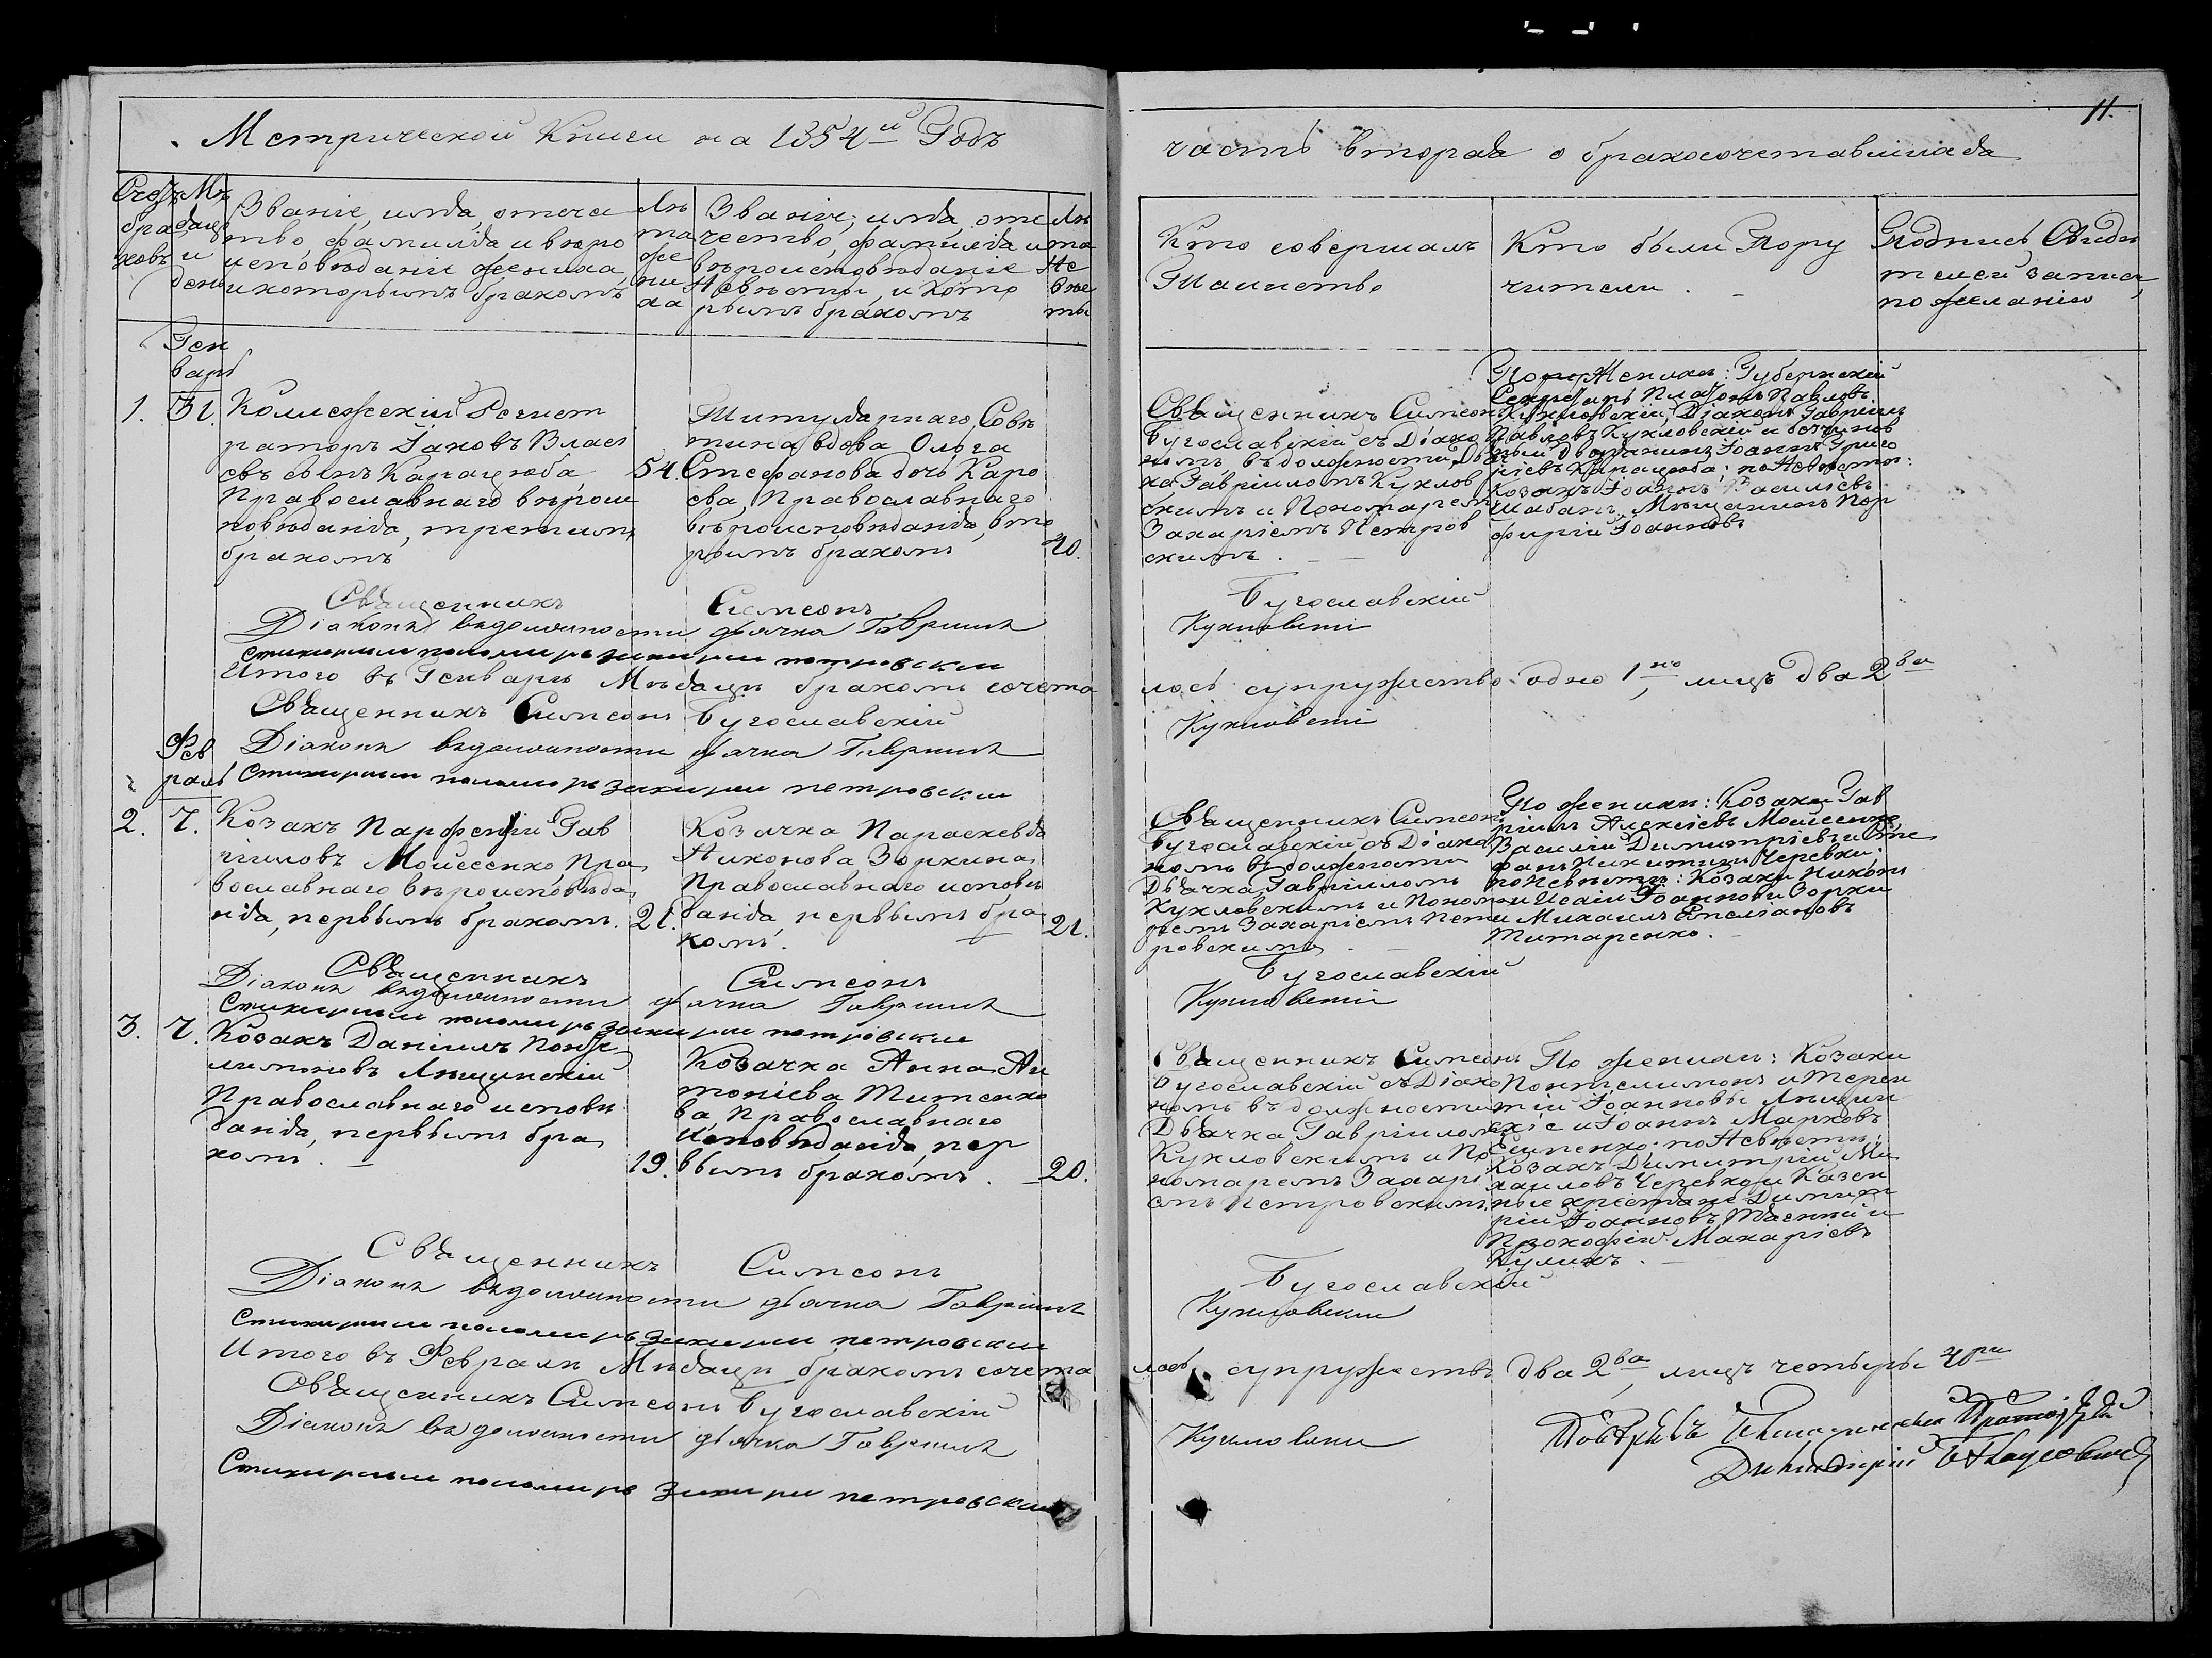 11.
Метрической Книги на 1854й Годъ
часть вторая о бракосочетавшихся
Счетъ браковъ
Мѣсяцъ и день
Званіе, имя, отече
ство, фамилія и вѣро
исповѣданіе жениха,
и которымъ бракомъ
Лѣ
та
же
ни
ха
Званіе, имя, оте
чество, фамилія и
вѣроисповѣданіе
Невѣсты, и кото
рымъ бракомъ
Лѣ
та
Не
вѣс
ты
Кто совершалъ
Таинство
Кто были Пору
чители.
Подпись Свидѣ
телей записи
по желанію
Ген
варь
1. 31.
Коллежскій Регист
раторъ Іаковъ Власі
евъ сынъ Карацюба,
Православнаго вѣроис
повѣданія, третимъ
бракомъ
54.
Титулярнаго Совѣ
тника вдова Ольга
Стефанова дочь Каро
ева Православнаго
вѣроисповѣданія, вто
рымъ бракомъ
40.
Священникъ Симеонъ
Бугославскій съ Діако
номъ въ должности Дья
ка Гавріиломъ Кухлов
скимъ и Пономаремъ
Захаріемъ Петров
скимъ.
По Женихѣ: Губернскій
Секретарь Платонъ Павловъ
Кухловскій, Діаконъ Гавріилъ
Павловъ Кухловскій и безчинов
ный Дворянинъ Іоаннъ Григо
ріевъ Карацюба; по Невѣстѣ:
Козакъ Іоаннъ Васильевъ
Шабанъ, Мѣщанинъ Пор
фирій Іоанновъ
Священникъ Симеонъ Бугославскій
Діаконъ въ должности дьячка Гавріилъ Кухловскій
Стихарный пономарь Захарій Петровскій
Итого въ Генварѣ Мѣсяцѣ бракомъ сочета
лось супружество одно 1но, лицъ два 2ва
Священникъ Симеонъ Бугославскій
Діаконъ въ должности дьячка Гавріилъ Кухловскій
Стихарный пономарь Захарій Петровскій
Фев
раль
2. 7.
Козакъ Парфеній Гав
ріиловъ Мойсеенко, Пра
вославнаго вѣроисповѣда
нія, первымъ бракомъ.
21.
Козачка Параскевія
Никонова Зоркина
Православнаго исповѣ
данія, первымъ бра
комъ.
21.
Священникъ Симеонъ
Бугославскій съ Діако
номъ въ должности
Дьячка Гавріиломъ
Кухловскимъ и Понома
ремъ Захаріемъ Пет
ровскимъ.
По женихѣ: Козаки Гав
ріилъ Алексіевъ Мойсеенко,
Василій Димитріевъ и Сте
фанъ Никитинъ Черевки.
по Невѣстѣ: Козаки Никонъ
и Исаія Іоанновы Зорки
и Михаилъ Емеліановъ
Титаренко.
Священникъ Симеонъ Бугославскій
Діаконъ въ должности дьячка Гавріилъ Кухловскій
Стихарный пономарь Захарій Петровскій
3. 7.
Козакъ Даніилъ Панте
лимоновъ Лищинскій
Православнаго исповѣ
данія, первымъ бра
комъ.
19.
Козачка Анна Ан
тоніева Титенко
ва, Православнаго
Исповѣданія, пер
вымъ бракомъ.
20.
Священникъ Симеонъ
Бугославскій съ Діако
номъ въ должности
Дьячка Гавріиломъ
Кухловскимъ и По
номаремъ Захарі
емъ Петровскимъ.
По женихѣ: Козаки
Понтелимонъ и Терен
тій Іоанновы Лищин
скіе и Іоаннъ Марковъ
Есипенко; по Невѣстѣ:
Козакъ Димитрій Ми
хаиловъ Черевко и Казен
ные крестьяне Димит
рій Іоанновъ Тяенній и
Прокофій Макаріевъ
Куликъ.
Священникъ Симеонъ Бугославскій
Діаконъ въ должности дьячка Гавріилъ Кухловскій
Стихарный пономарь Захарій Петровскій
Итого въ Февралѣ Мѣсяцѣ бракомъ сочета
лось супружествъ два 2ва, лицъ четыры 4ри
Священникъ Симеонъ Бугославскій
Діаконъ въ должности дьячка Гавріилъ Кухловскій
Стихарный пономарь Захарій Петровскій